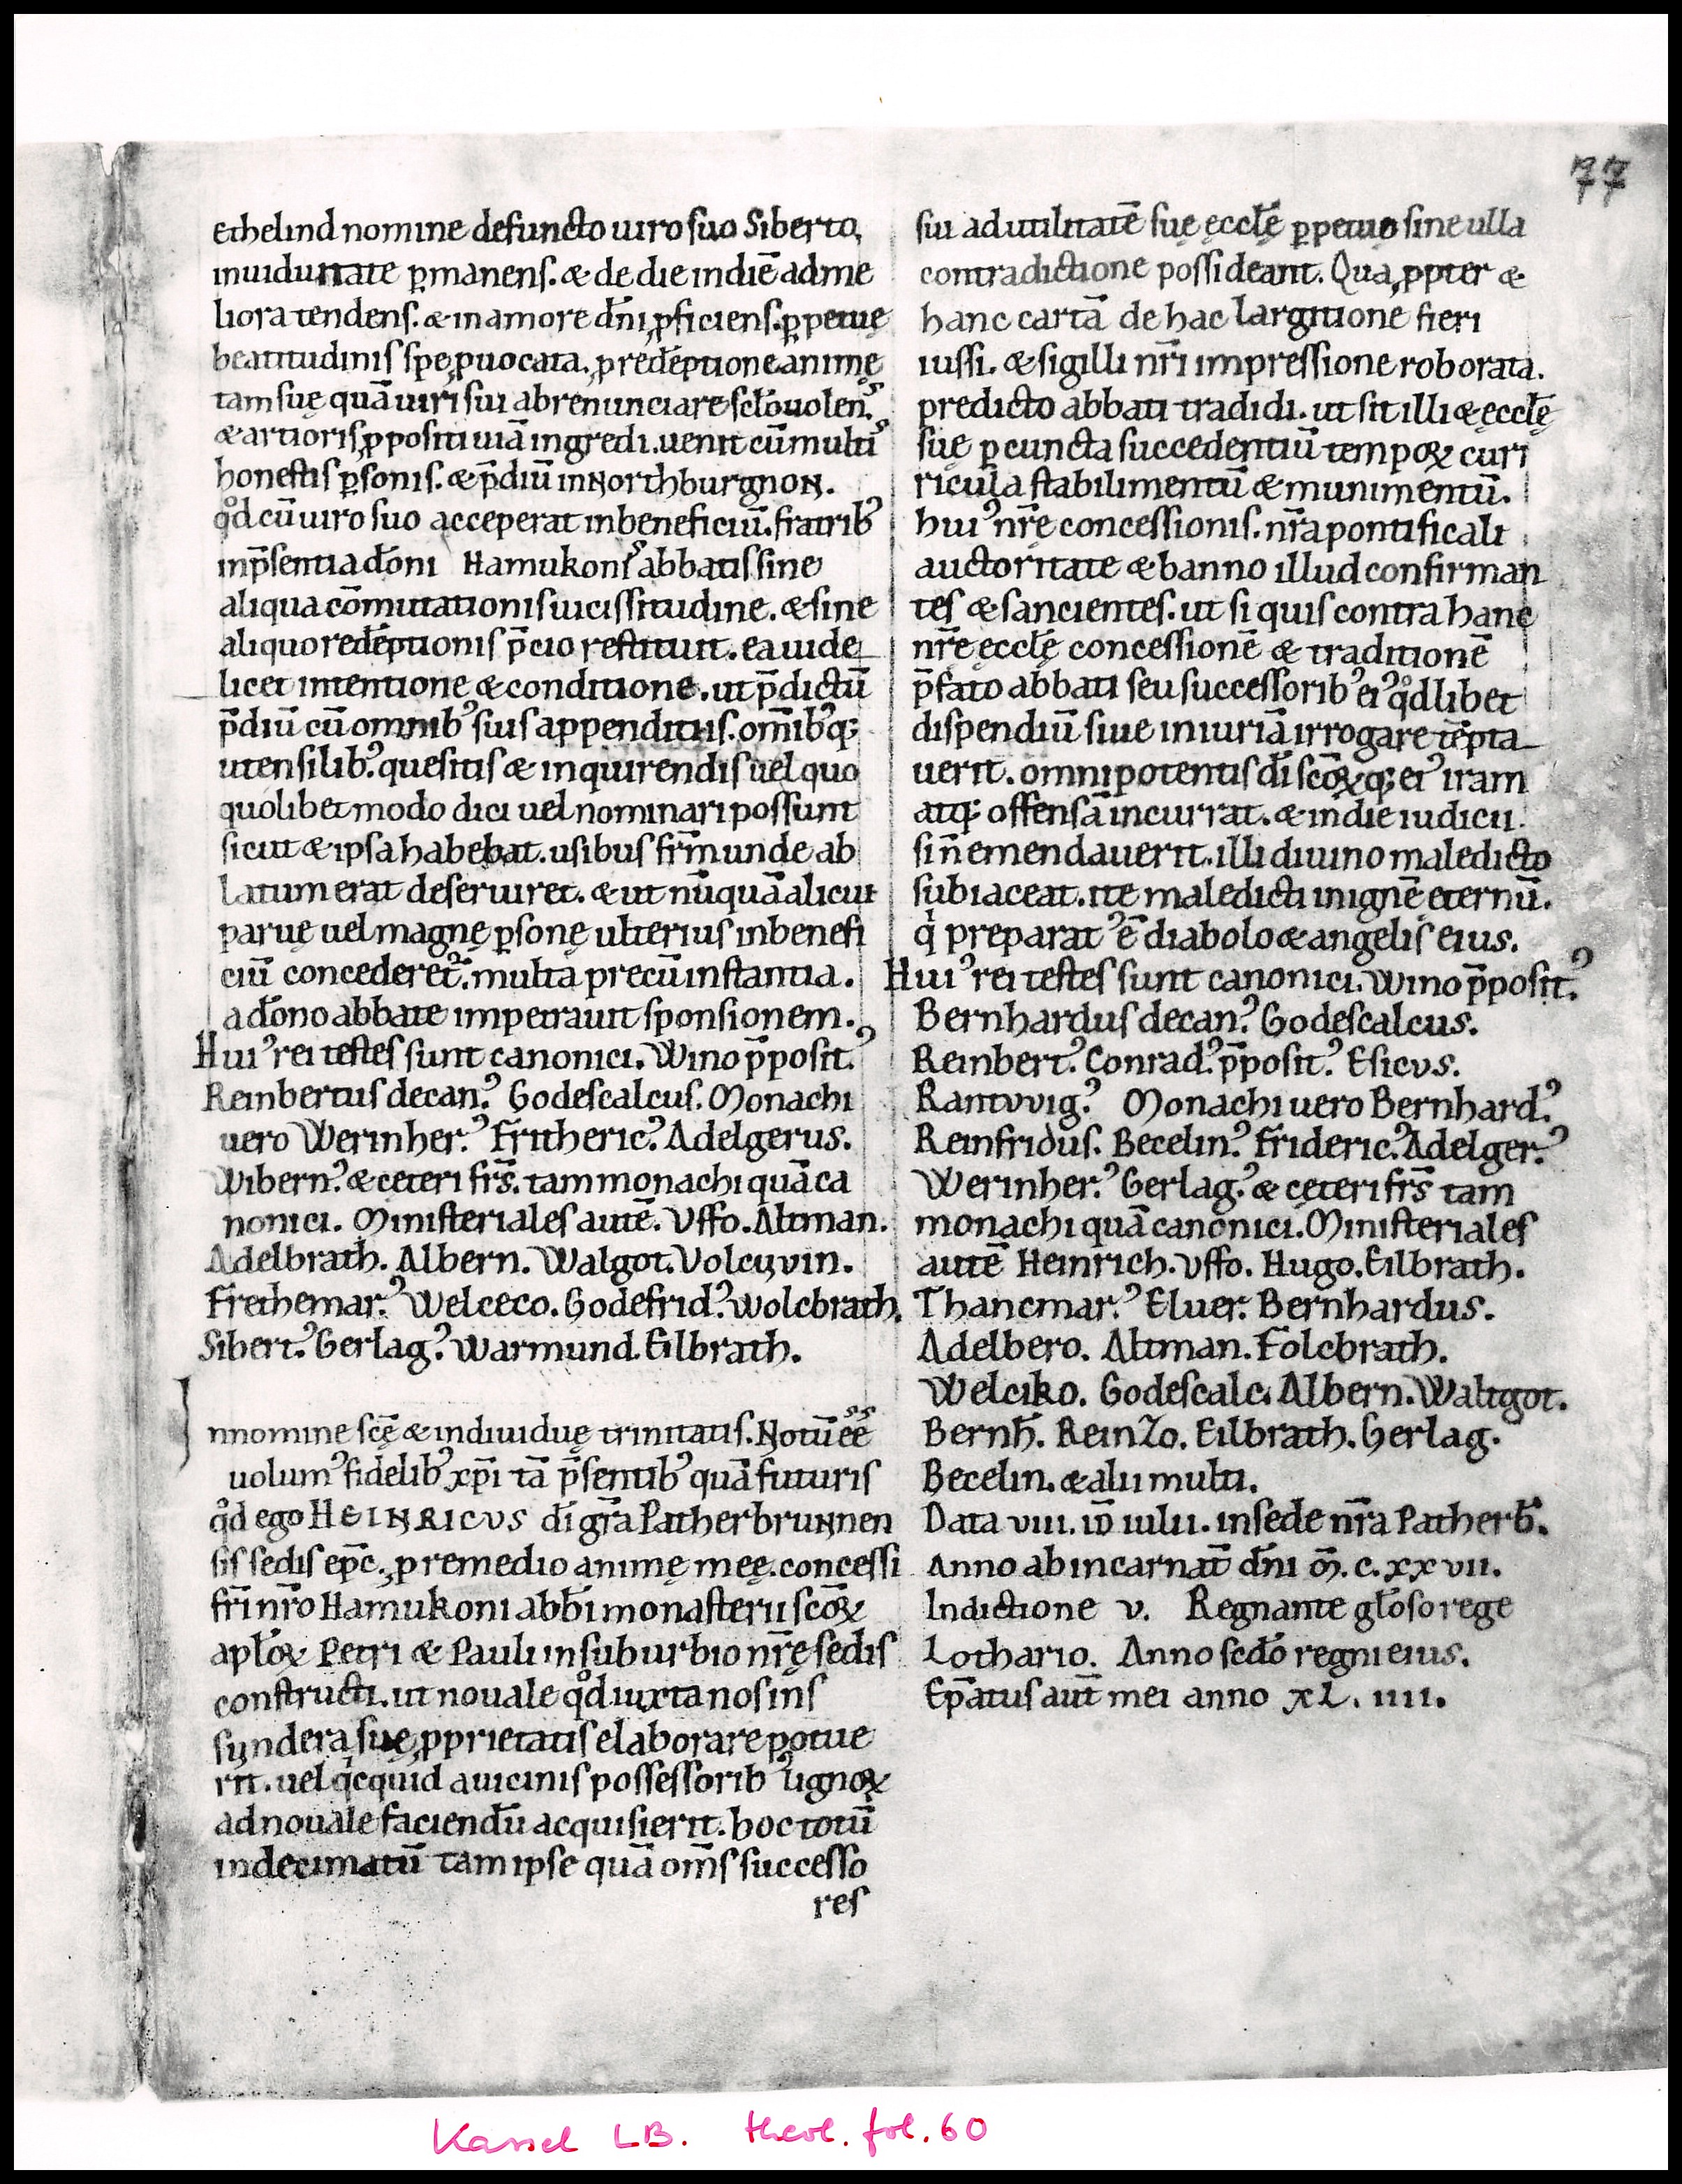 77
Ethelind nomine defuncto uiro suo Siberto,
inuiduitate ꝑmanens. & de die indiē adme
liora tendens. & in amore dn̄i ꝓficiens. ꝑpetuę
beatitudinis spe ꝓuocata. ꝓ redēptione animę
tam suę quā uiri sui abrenunciare sc̄lo uolens.
& artioris ꝓpositi uiā ingredi. uenit cū multis
honestis ꝑsonis. & p̄diū in Northburgnon.
qd̊ cū uiro suo acceperat inbeneficiū. fratribꝰ
inp̄sentia don̄i Hamukonis abbatis sine
aliqua com̄utationis uicissitudine. & sine
aliquo redēptionis p̄cio restituit. ea uide
licet intentione & conditione. ut p̄dictū
p̄diū cū omnibꝰ suis appenditiis. om̄ibꝰq;
utensilibꝰ. quesitis & inquirendis uel quo
quolibet modo dici uel nominari possunt
sicut & ipsa habebat. usibus frm̄ unde ab
latum erat deseruiret. & ut nūquā alicui
paruę uel magnę ꝑsonę ulterius inbenefi
ciū concederet᷑. multa precū instantia.
a dōno abbate impetrauit sponsionem.
Huiꝰ rei testes sunt canonici. Wino p̄positꝰ.
Reinbertus decanꝰ. Godescalcus. Monachi
uero Werinherꝰ. Frithericꝰ. Adelgerus.
Wibernꝰ. & cęteri fr̄s. tam monachi quā ca
nonici. Ministeriales autē. Vffo. Altman.
Adelbrath. Albern. Walgot. Volcvvin.
Frethemarꝰ. Welceco. Godefridꝰ. Wolcbrath.
Sibertꝰ. Gerlagꝰ. Warmund. Eilbrath.
Innomine scę̄ & indiuiduę trinitatis. Notū ee̅
uolumꝰ fidelibꝰ xp̄i tā p̄sentibꝰ quā futuris
qd̊ ego HEINRICVS di̅ gr̄a Patherbrunnen
sis sedis ep̄c. ꝓ remedio animę meę. concessi
fr̄i nr̄o Hamukoni abb̄i monasterii sc̄oꝝ
apl̄oꝝ Petri & Pauli insuburbio nr̄ę sedis
constructi. ut nouale qd̊ iuxta nos ins
syndera suę ꝓprietatis elaborare potue
rit. uel qi̇cquid auicinis possessoribꝰ lignoꝝ
ad nouale faciendū acquisierit. hoc totū
indecimatū tam ipse quā om̄s successo
res
sui ad utilitatē suę ęccl̄ę ꝑpetuo sine ulla
contradictione possideant. Quaꝓpter &
hanc cartā de hac largitione fieri
iussi. & sigilli nr̄i impressione roborata.
predicto abbati tradidi. ut sit illi & ęccl̄ę
suę ꝑ cuncta succedentiū tempoꝝ curi
ricula stabilimentū & munimentū.
huiꝰ nr̄e concessionis. nr̄a pontificali
auctoritate & banno illud confirman
tes & sancientes. ut si quis contra hanc
nr̄e ęccl̄ę concessionē & traditionē
p̄fato abbati seu successoribꝰ eiꝰ qd̊libet
dispendiū siue iniuriā irrogare tēpta
uerit. omnipotentis di̅ sc̄oꝝq; eiꝰ iram
atq; offensā incurrat. & in die iudicii.
si n̄ emendauerit. illi diuino maledicto
subiaceat. ite maledicti inignē eternū.
qi̇ preparatꝰ ē diabolo & angelis eius.
Huiꝰ rei testes sunt canonici. Wino p̄positꝰ.
Bernhardus decanꝰ. Godescalcus.
Reinbertꝰ. Conradꝰ. p̄positꝰ. Esicvs.
Rantvvigꝰ. Monachi uero Bernhardꝰ.
Reinfridus. Becelinꝰ. Fridericꝰ. Adelgerꝰ.
Werinherꝰ. Gerlagꝰ. & cęteri fr̄s tam
monachi quā canonici. Ministeriales
autē Heinrich. Vffo. Hugo. Eilbrath.
Thancmarꝰ. Eluer. Bernhardus.
Adelbero. Altman. Folcbrath.
Welciko. Godescalc. Albern. Waltgot.
Bernh̄. Reinzo. Eilbrath. Gerlag.
Becelin. & alii multi.
Data viii. id̄ iulii. insede nr̄a Patherb̄.
Anno ab incarnat̄ dn̄i m̄. c. xxvii.
Indictione v. Regnante gl̄oso rege
Lothario. Anno scd̄o regni eius.
Ep̄atus aut̄ mei anno xl. iiii.
Kassel LB. theol. fol. 60